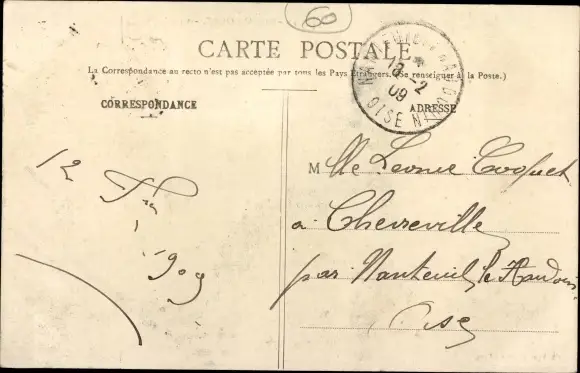 60
CARTE POSTALE
La Correspondance au recto n'est pas acceptée par tous les Pays Étrangers. (Se renseigner à la Poste.)
CORRESPONDANCE
ADRESSE
NANTEUIL-LE-HAUDOUIN
13 -2
09
OISE
12 fer
1909
Mlle Leonie Coquet
à Chevreville
par Nanteuil le Haudoin
Oise